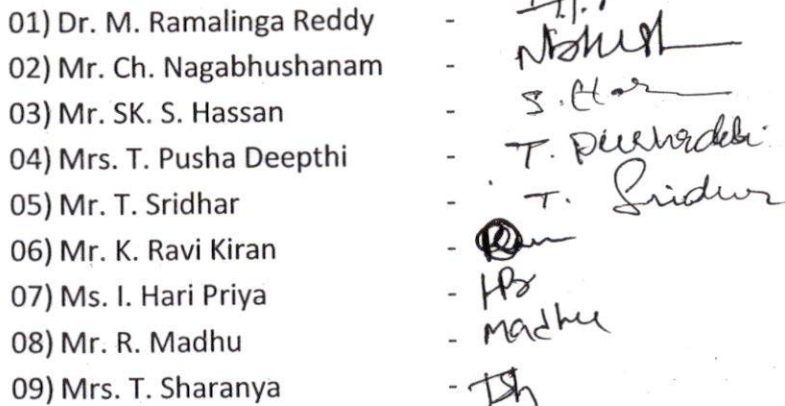 01) Dr. M. Ramalinga Reddy -
02) Mr. Ch. Nagabhushanam -
03) Mr. SK. S. Hassan - S.
04) Mrs. T. Pusha Deepthi - T.
05) Mr. T. Sridhar - T. Sridhar
06) Mr. K. Ravi Kiran -
07) Ms. I. Hari Priya -
08) Mr. R. Madhu - Madhu
09) Mrs. T. Sharanya -